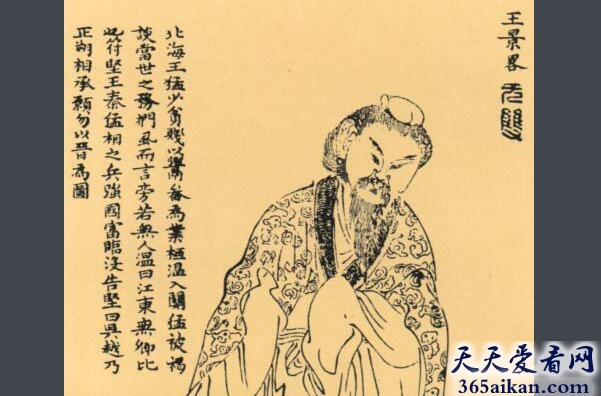 王景畧 无雙
北海王猛少貧賤以鬻畚為業桓溫入關猛被褐
談當世之務捫虱而言旁若無人溫曰江東無卿比
付堅王秦猛相之兵強國富臨沒告堅曰吳越乃
正朔相承願勿以晉為圖
天天爱看网
365aikan.com